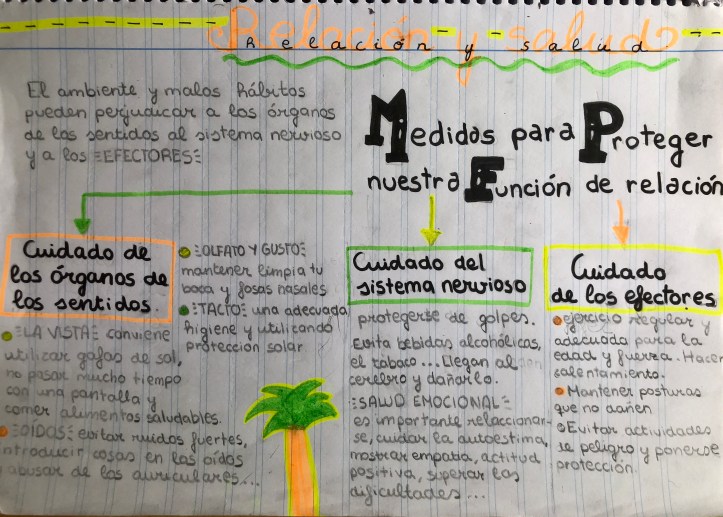 Relación y salud
Relación y salud
El ambiente y malos hábitos
pueden perjudicar a los órganos
de los sentidos al sistema nervioso
y a los EFECTORES
Medidas para Proteger
nuestra Función de relación
Cuidado de
los órganos de
los sentidos.
LA VISTA conviene
utilizar gafas de sol,
no pasar mucho tiempo
con una pantalla y
comer alimentos saludables.
OÍDOS evitar ruidos fuertes,
introducir cosas en los oídos
abusar de los auriculares...
OLFATO Y GUSTO
mantener limpia tu
boca y fosas nasales
TACTO una adecuada
higiene y utilizando
protección solar
Cuidado del
sistema nervioso
protegerse de golpes.
Evita bebidas alcohólicas,
el tabaco... Llegan al
cerebro y dañarlo.
SALUD EMOCIONAL
es importante relaccionar-
se, cuidar la autoestima,
mostrar empatía, actitud
positiva, superar las
dificultades...
Cuidado
de los efectores
ejercicio regular y
adecuada para la
edad y fuerza. Hacer
calentamiento.
Mantener posturas
que no dañen
Evitar actividades
se peligro y ponerse
protección.